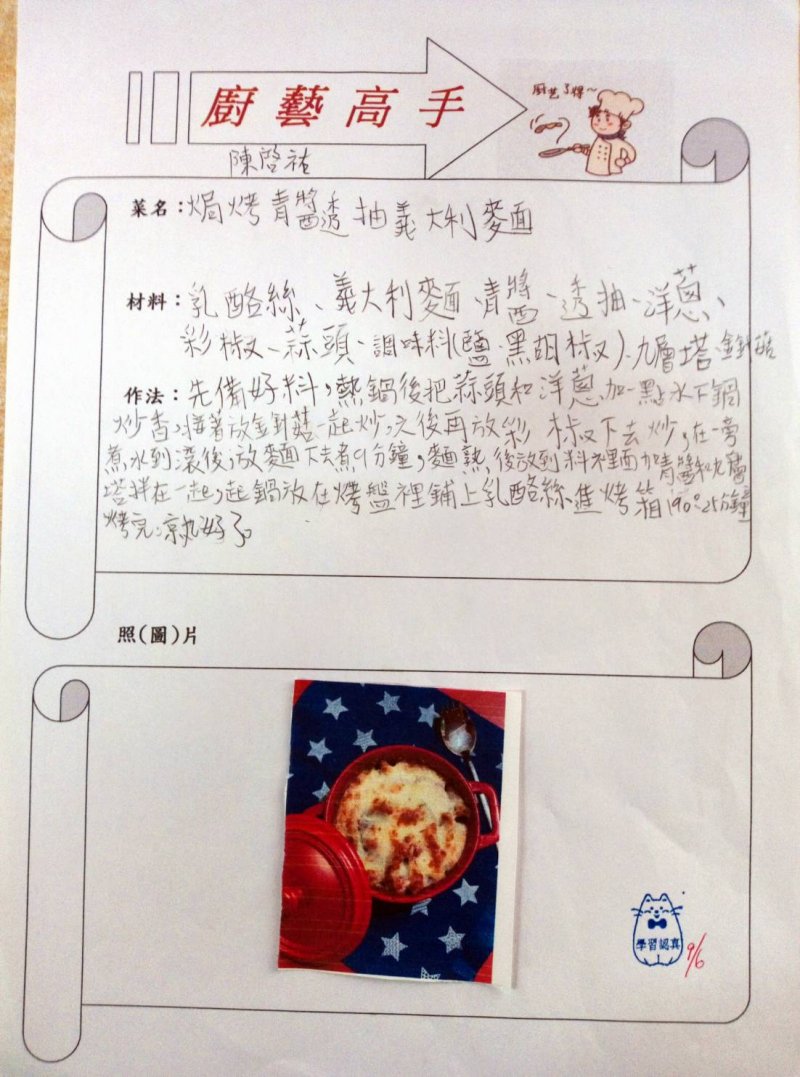 廚藝高手
厨艺了得~
陳啓祐
菜名:焗烤青醬透抽義大利麵
材料:乳酪絲、義大利麵、青醬、透抽、洋蔥、
彩椒、蒜頭、調味料(鹽、黑胡椒)、九層塔、金針菇
作法:先備好料,熱鍋後把蒜頭和洋蔥加一點水下鍋
炒香,接著放金針菇一起炒,之後再放彩椒下去炒,在一旁
煮水到滾後,放麵下去煮9分鐘,麵熟後放到料裡面加青醬和九層
塔拌在一起,起鍋放在烤盤裡鋪上乳酪絲進烤箱190°25分鐘
烤完就好了
照(圖)片
學習認真
9/6